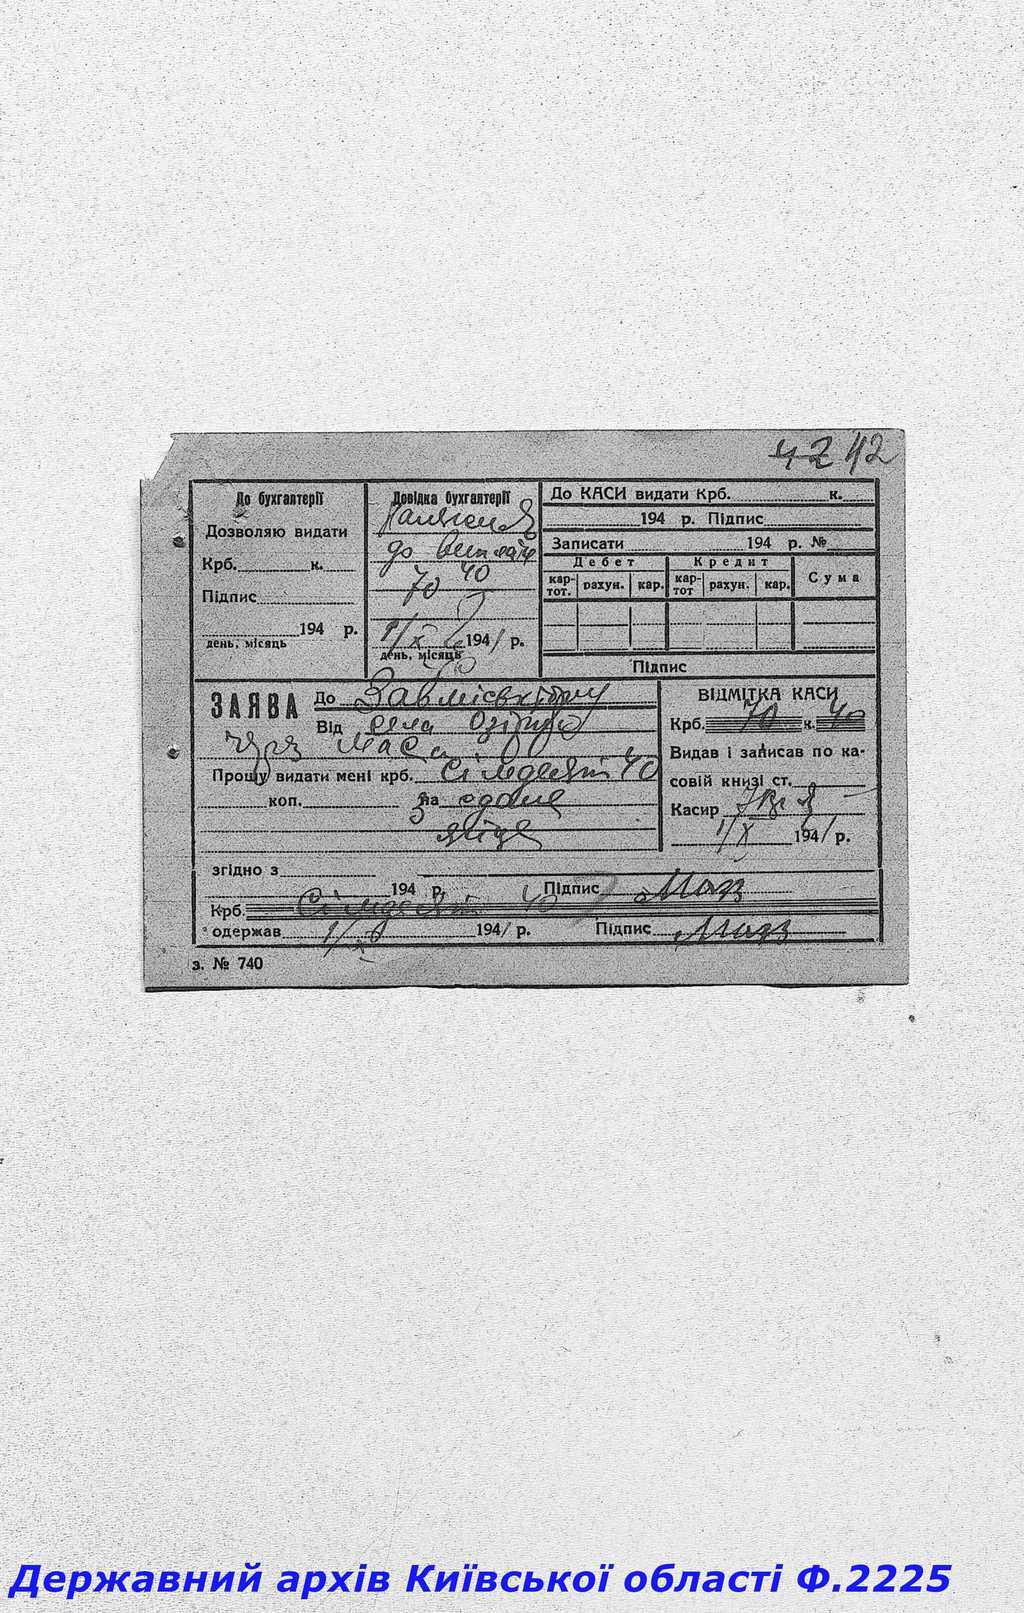 42 42
До бухгалтерії
Дозволяю видати
Крб. к.
Підпис
194 р.
день, місяць
Довідка бухгалтерії
до
70 40
1/X 1941 р.
день, місяць
До КАСИ видати Крб. к.
194 р. Підпис
Записати 194 р. №
Дебет Кредит Сума
кар-тот. рахун. кар. кар-тот рахун. кар.
Підпис
ЗАЯВА До
Від села
через
Прошу видати мені крб. Сімдесят 40
коп. на здане
яйце
ВІДМІТКА КАСИ
Крб. 70 к. 40
Видав і записав по ка-
совій книзі ст.
Касир
1/X 1941 р.
згідно з
194 р. Підпис
Крб. Сімдесят 40
одержав 1/X 1941 р. Підпис
з. № 740
Державний архів Київської області Ф.2225